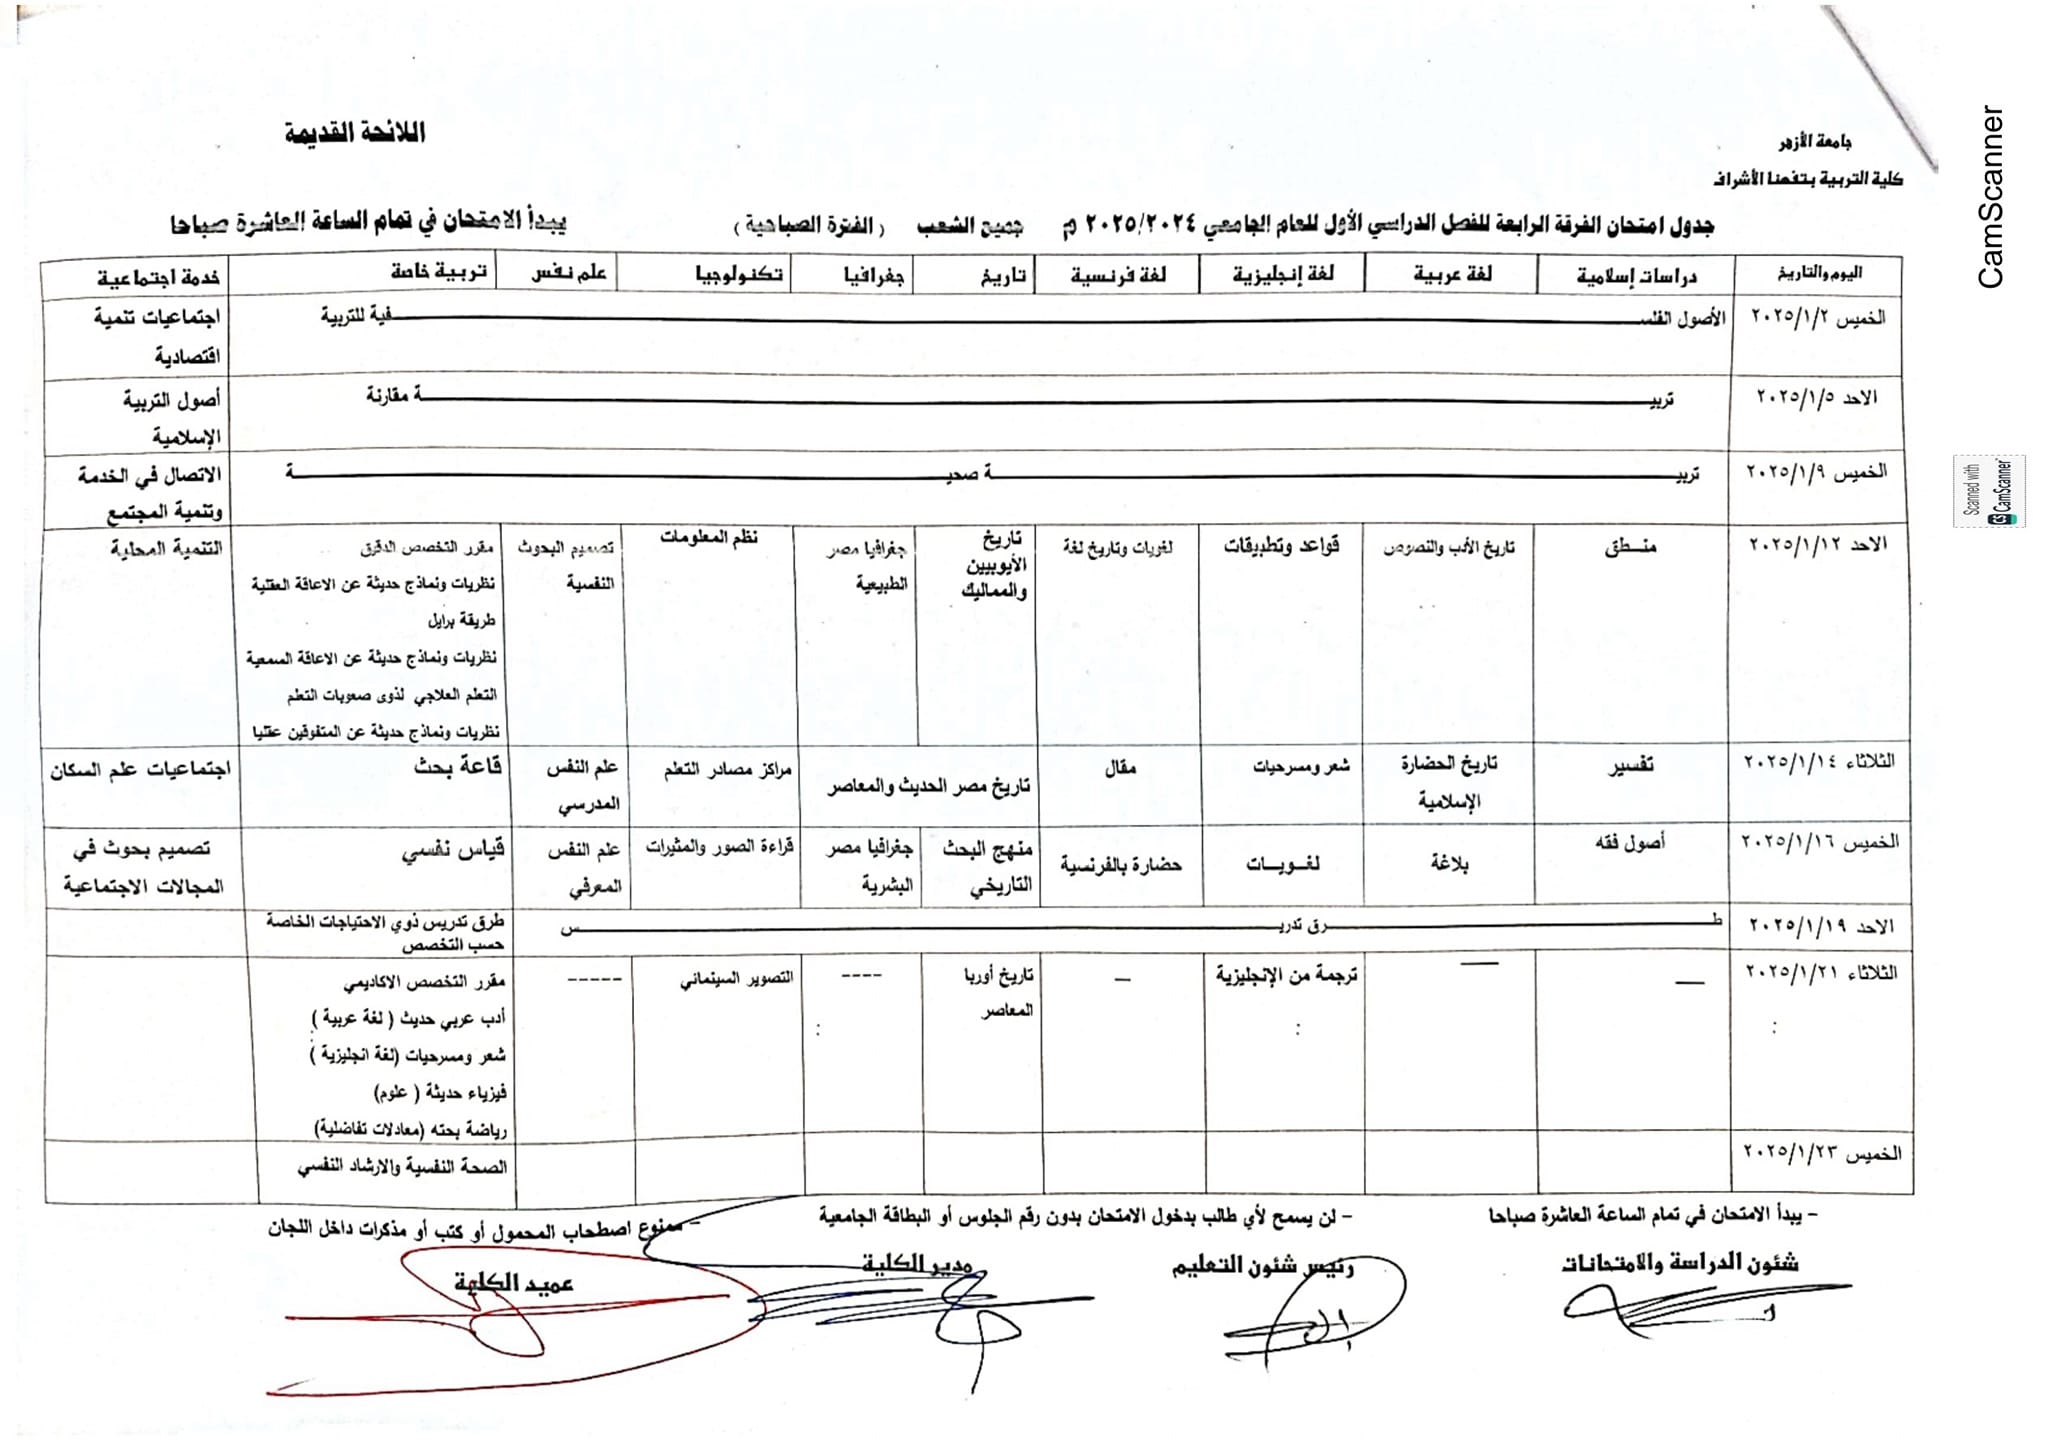 جامعة الأزهر
كلية التربية بتفهنا الأشراف
اللائحة القديمة
جدول امتحان الفرقة الرابعة للفصل الدراسي الأول للعام الجامعي ٢٠٢٥/٢٠٢٤ م جميع الشعب ( الفترة الصباحية ) يبدأ الامتحان في تمام الساعة العاشرة صباحا
اليوم والتاريخ
دراسات إسلامية
لغة عربية
لغة إنجليزية
لغة فرنسية
تاريخ
جغرافيا
تكنولوجيا
علم نفس
تربية خاصة
خدمة اجتماعية
الخميس ٢٠٢٥/١/٢
الأصول الفلســـفية للتربية
اجتماعيات تنمية
اقتصادية
الاحد ٢٠٢٥/١/٥
تربيـــة مقارنة
أصول التربية
الإسلامية
الخميس ٢٠٢٥/١/٩
تربيـــة صحيـــة
الاتصال في الخدمة
وتنمية المجتمع
الاحد ٢٠٢٥/١/١٢
منــطق
تاريخ الأدب والنصوص
قواعد وتطبيقات
لغويات وتاريخ لغة
تاريخ
الأيوبيين
والمماليك
جغرافيا مصر
الطبيعية
نظم المعلومات
تصميم البحوث
النفسية
مقرر التخصص الدقيق
نظريات ونماذج حديثة عن الاعاقة العقلية
طريقة برايل
نظريات ونماذج حديثة عن الاعاقة السمعية
التعلم العلاجي لذوى صعوبات التعلم
نظريات ونماذج حديثة عن المتفوقين عقليا
التنمية المحلية
الثلاثاء ٢٠٢٥/١/١٤
تفسير
تاريخ الحضارة
الإسلامية
شعر ومسرحيات
مقال
تاريخ مصر الحديث والمعاصر
مراكز مصادر التعلم
علم النفس
المدرسي
قاعة بحث
اجتماعيات علم السكان
الخميس ٢٠٢٥/١/١٦
أصول فقه
بلاغة
لغــويــات
حضارة بالفرنسية
منهج البحث
التاريخي
جغرافيا مصر
البشرية
قراءة الصور والمثيرات
علم النفس
المعرفي
قياس نفسي
تصميم بحوث في
المجالات الاجتماعية
الاحد ٢٠٢٥/١/١٩
طـــرق تدريـــس
طرق تدريس ذوي الاحتياجات الخاصة
حسب التخصص
الثلاثاء ٢٠٢٥/١/٢١
—
—
ترجمة من الإنجليزية
—
تاريخ أوربا
المعاصر
----
التصوير السينمائي
-----
مقرر التخصص الاكاديمي
أدب عربي حديث ( لغة عربية )
شعر ومسرحيات (لغة انجليزية )
فيزياء حديثة ( علوم)
رياضة بحته (معادلات تفاضلية)
الخميس ٢٠٢٥/١/٢٣
الصحة النفسية والارشاد النفسي
- يبدأ الامتحان في تمام الساعة العاشرة صباحا
- لن يسمح لأي طالب بدخول الامتحان بدون رقم الجلوس أو البطاقة الجامعية
- ممنوع اصطحاب المحمول أو كتب أو مذكرات داخل اللجان
شئون الدراسة والامتحانات
رئيس شئون التعليم
مدير الكلية
عميد الكلية
CamScanner
Scanned with
CS CamScanner